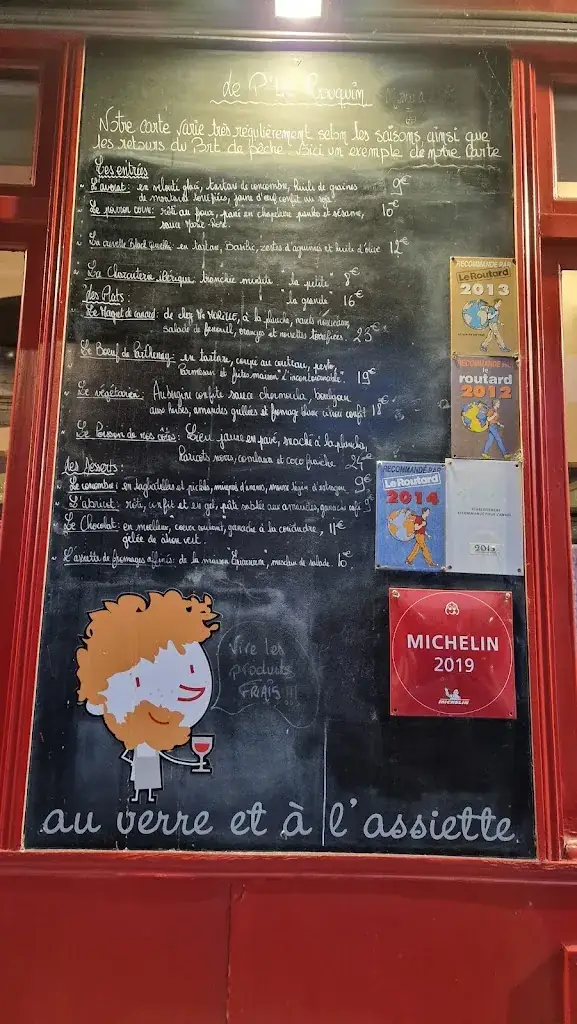 de P'tit Rouquin
Notre carte varie très régulièrement selon les saisons, ainsi que
les retours du Port de Pêche. Voici un exemple de notre Carte
Les entrées
L'avocat : en velouté glacé, tartare de concombre, Huile de graines 9€
de moutarde torréfiées, jaune d'œuf confit au soja
Le poivron cœur : rôti au four, pané en chapelure panko et sésame, 10€
sauce
La crevette Black : en tartare, Basilic, zestes d'agrumes et huile d'olive 12€
La Charcuterie ibérique tranchée minute : "la petite" 8€
"la grande" 16€
Les Plats :
Le Magret de canard : de chez, à la plancha, navets
salade de fenouil, oranges et noisettes torréfiées 23€
Le Bœuf de Parthenay : en tartare, coupé au couteau, pesto,
Parmesan et frites maison "l'incontournable" 19€
Le végétarien : Aubergine confite sauce chermoula, boulgour
aux herbes, amandes grillées et fromage blanc citron confit 18€
Le Poisson de nos côtes : Lieu jaune en pavé, snacké à la plancha,
Haricots verts, combava et coco fraîche 24€
Les Desserts :
Le concombre : en tagliatelles et pickles, 9€
L'abricot : rôti, confit et en gel, pâte sablée aux amandes, ganache café 9€
Le Chocolat : en moelleux, cœur coulant, ganache à la coriandre, 11€
gelée de citron vert.
L'assiette de fromages affinés : de la maison, mesclun de salade. 10€
RECOMMANDÉ PAR
Le Routard
2013
RECOMMANDÉ PAR
le
routard
2012
RECOMMANDÉ PAR
Le Routard
2014
2015
MICHELIN
2019
MICHELIN
Vive les
produits
FRAIS !!!
au verre et à l'assiette